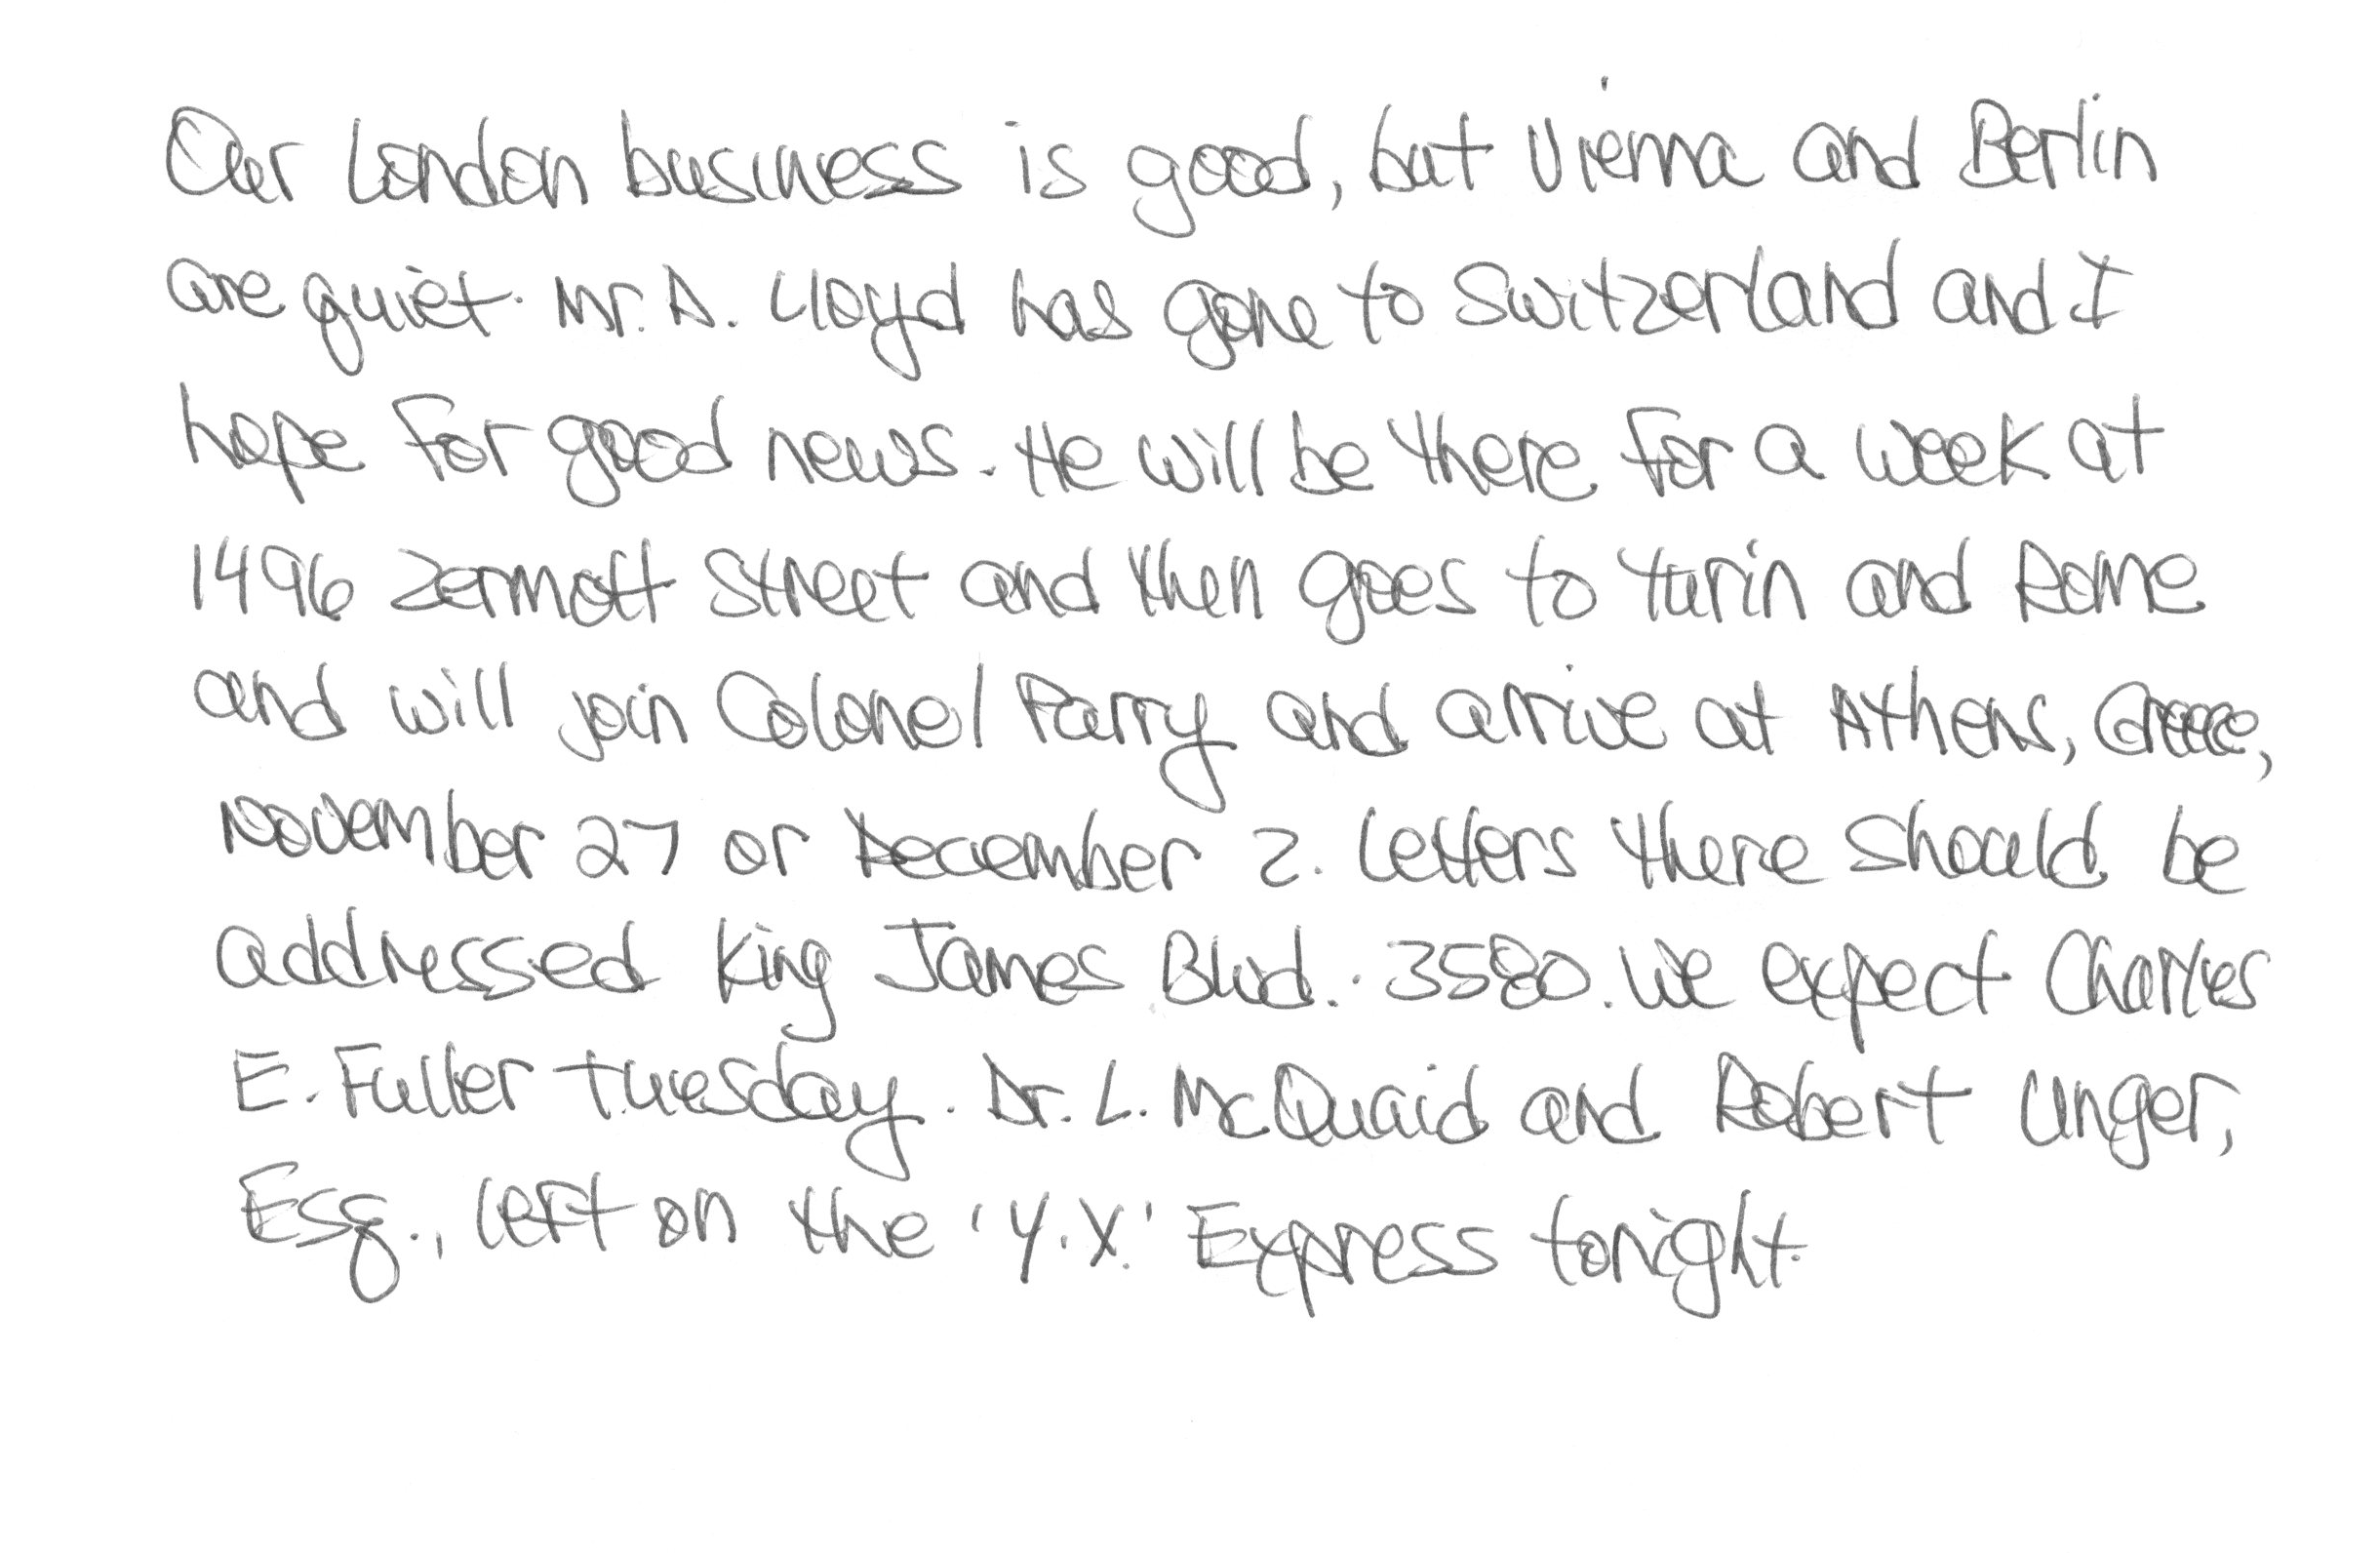 Our London business is good, but Vienna and Berlin
are quiet. Mr. D. Lloyd has gone to Switzerland and I
hope for good news. He will be there for a week at
1496 Zermott Street and then goes to Turin and Rome
and will join Colonel Parry and arrive at Athens, Greece,
November 27 or December 2. Letters there should be
addressed King James Blvd. 3580. We expect Charles
E. Fuller Tuesday. Dr. L. McQuaid and Robert Unger,
Esq., left on the 'Y.X.' Express tonight.